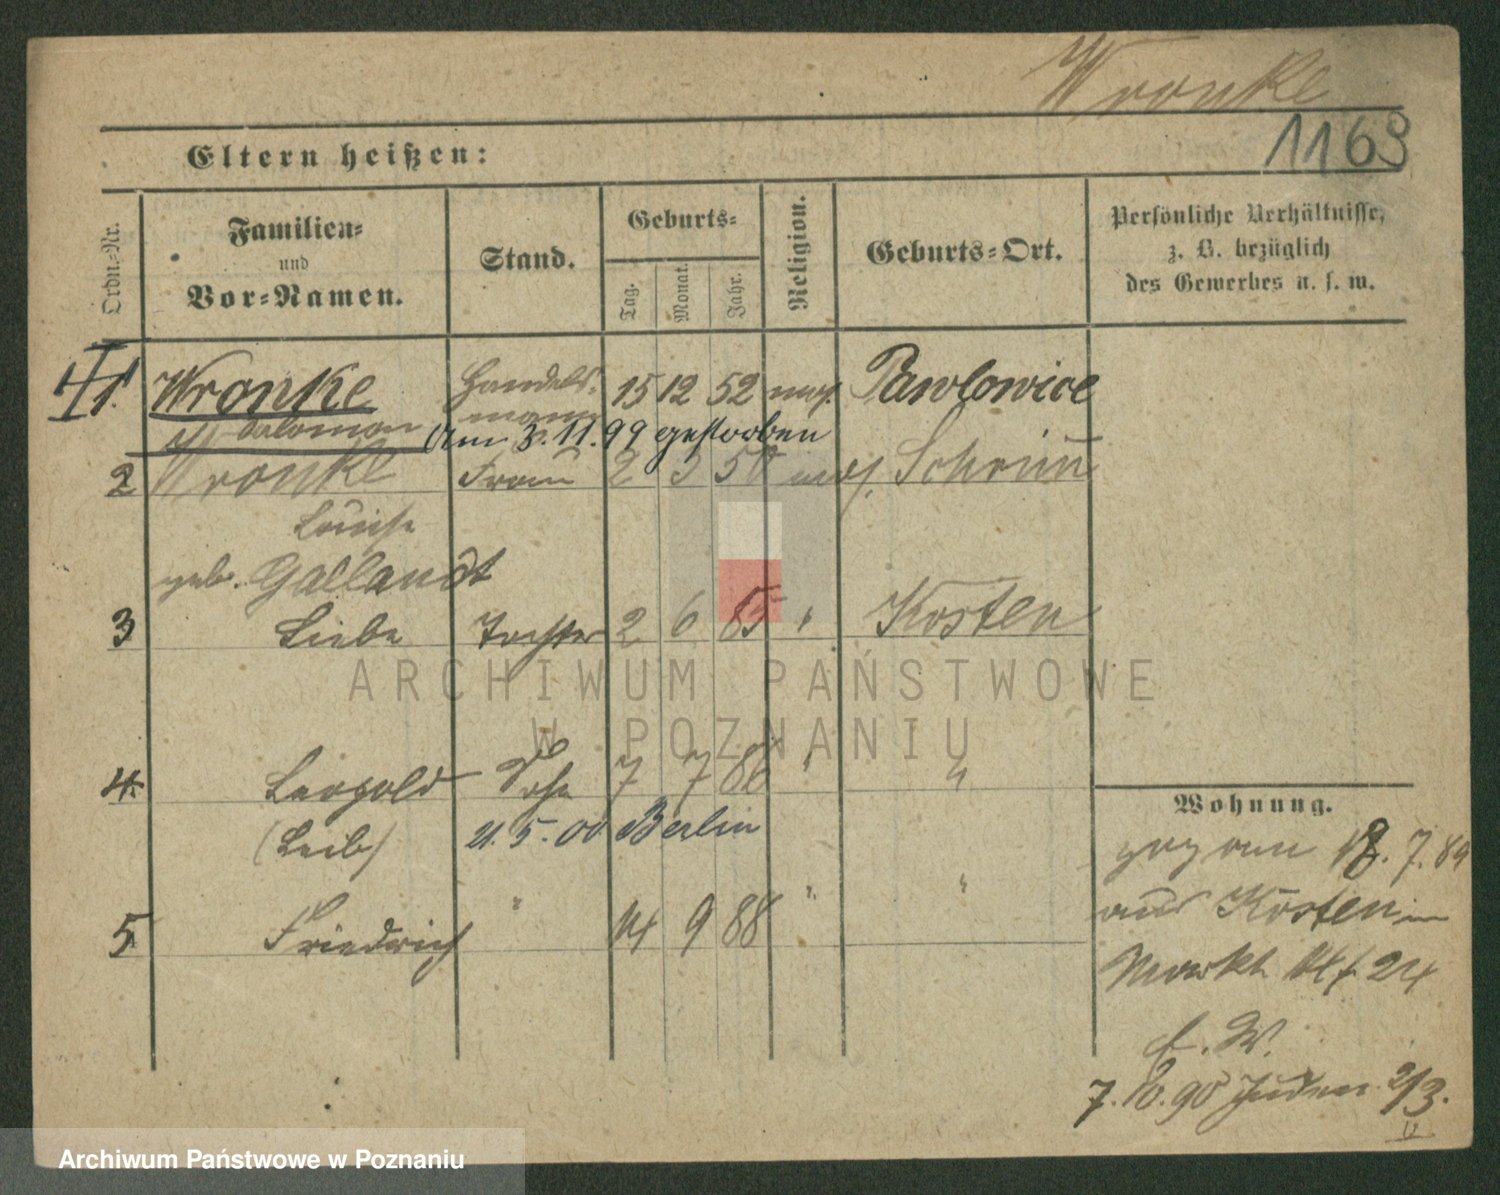 Wronke
1163
Eltern heißen:
Ordn.-Nr.
Familien-
und
Vor-Namen.
Stand.
Geburts-
Tag.
Monat.
Jahr.
Religion.
Geburts-Ort.
Persönliche Verhältnisse,
z. B. bezüglich
des Gewerbes u. s. w.
1. Wronke Handels- 15 12 52 mos. Pawlowice
Salomon mann
Am 3.11.99 gestorben
2 Wronke Frau 2 3 50 mos. Schrimm
Louise
geb. Gallandt
3 Liebe Tochter 2 6 85 " Kosten
4. Leopold Sohn 7 7 86 " "
(Leib) 21.5.00 Berlin
5 Friedrich " 14 9 88 " "
Wohnung.
18.7.89
aus Kosten in
Markt 24
E. W.
7.10.90 Juden 2/3.
II
ARCHIWUM PAŃSTWOWE
W POZNANIU
Archiwum Państwowe w Poznaniu